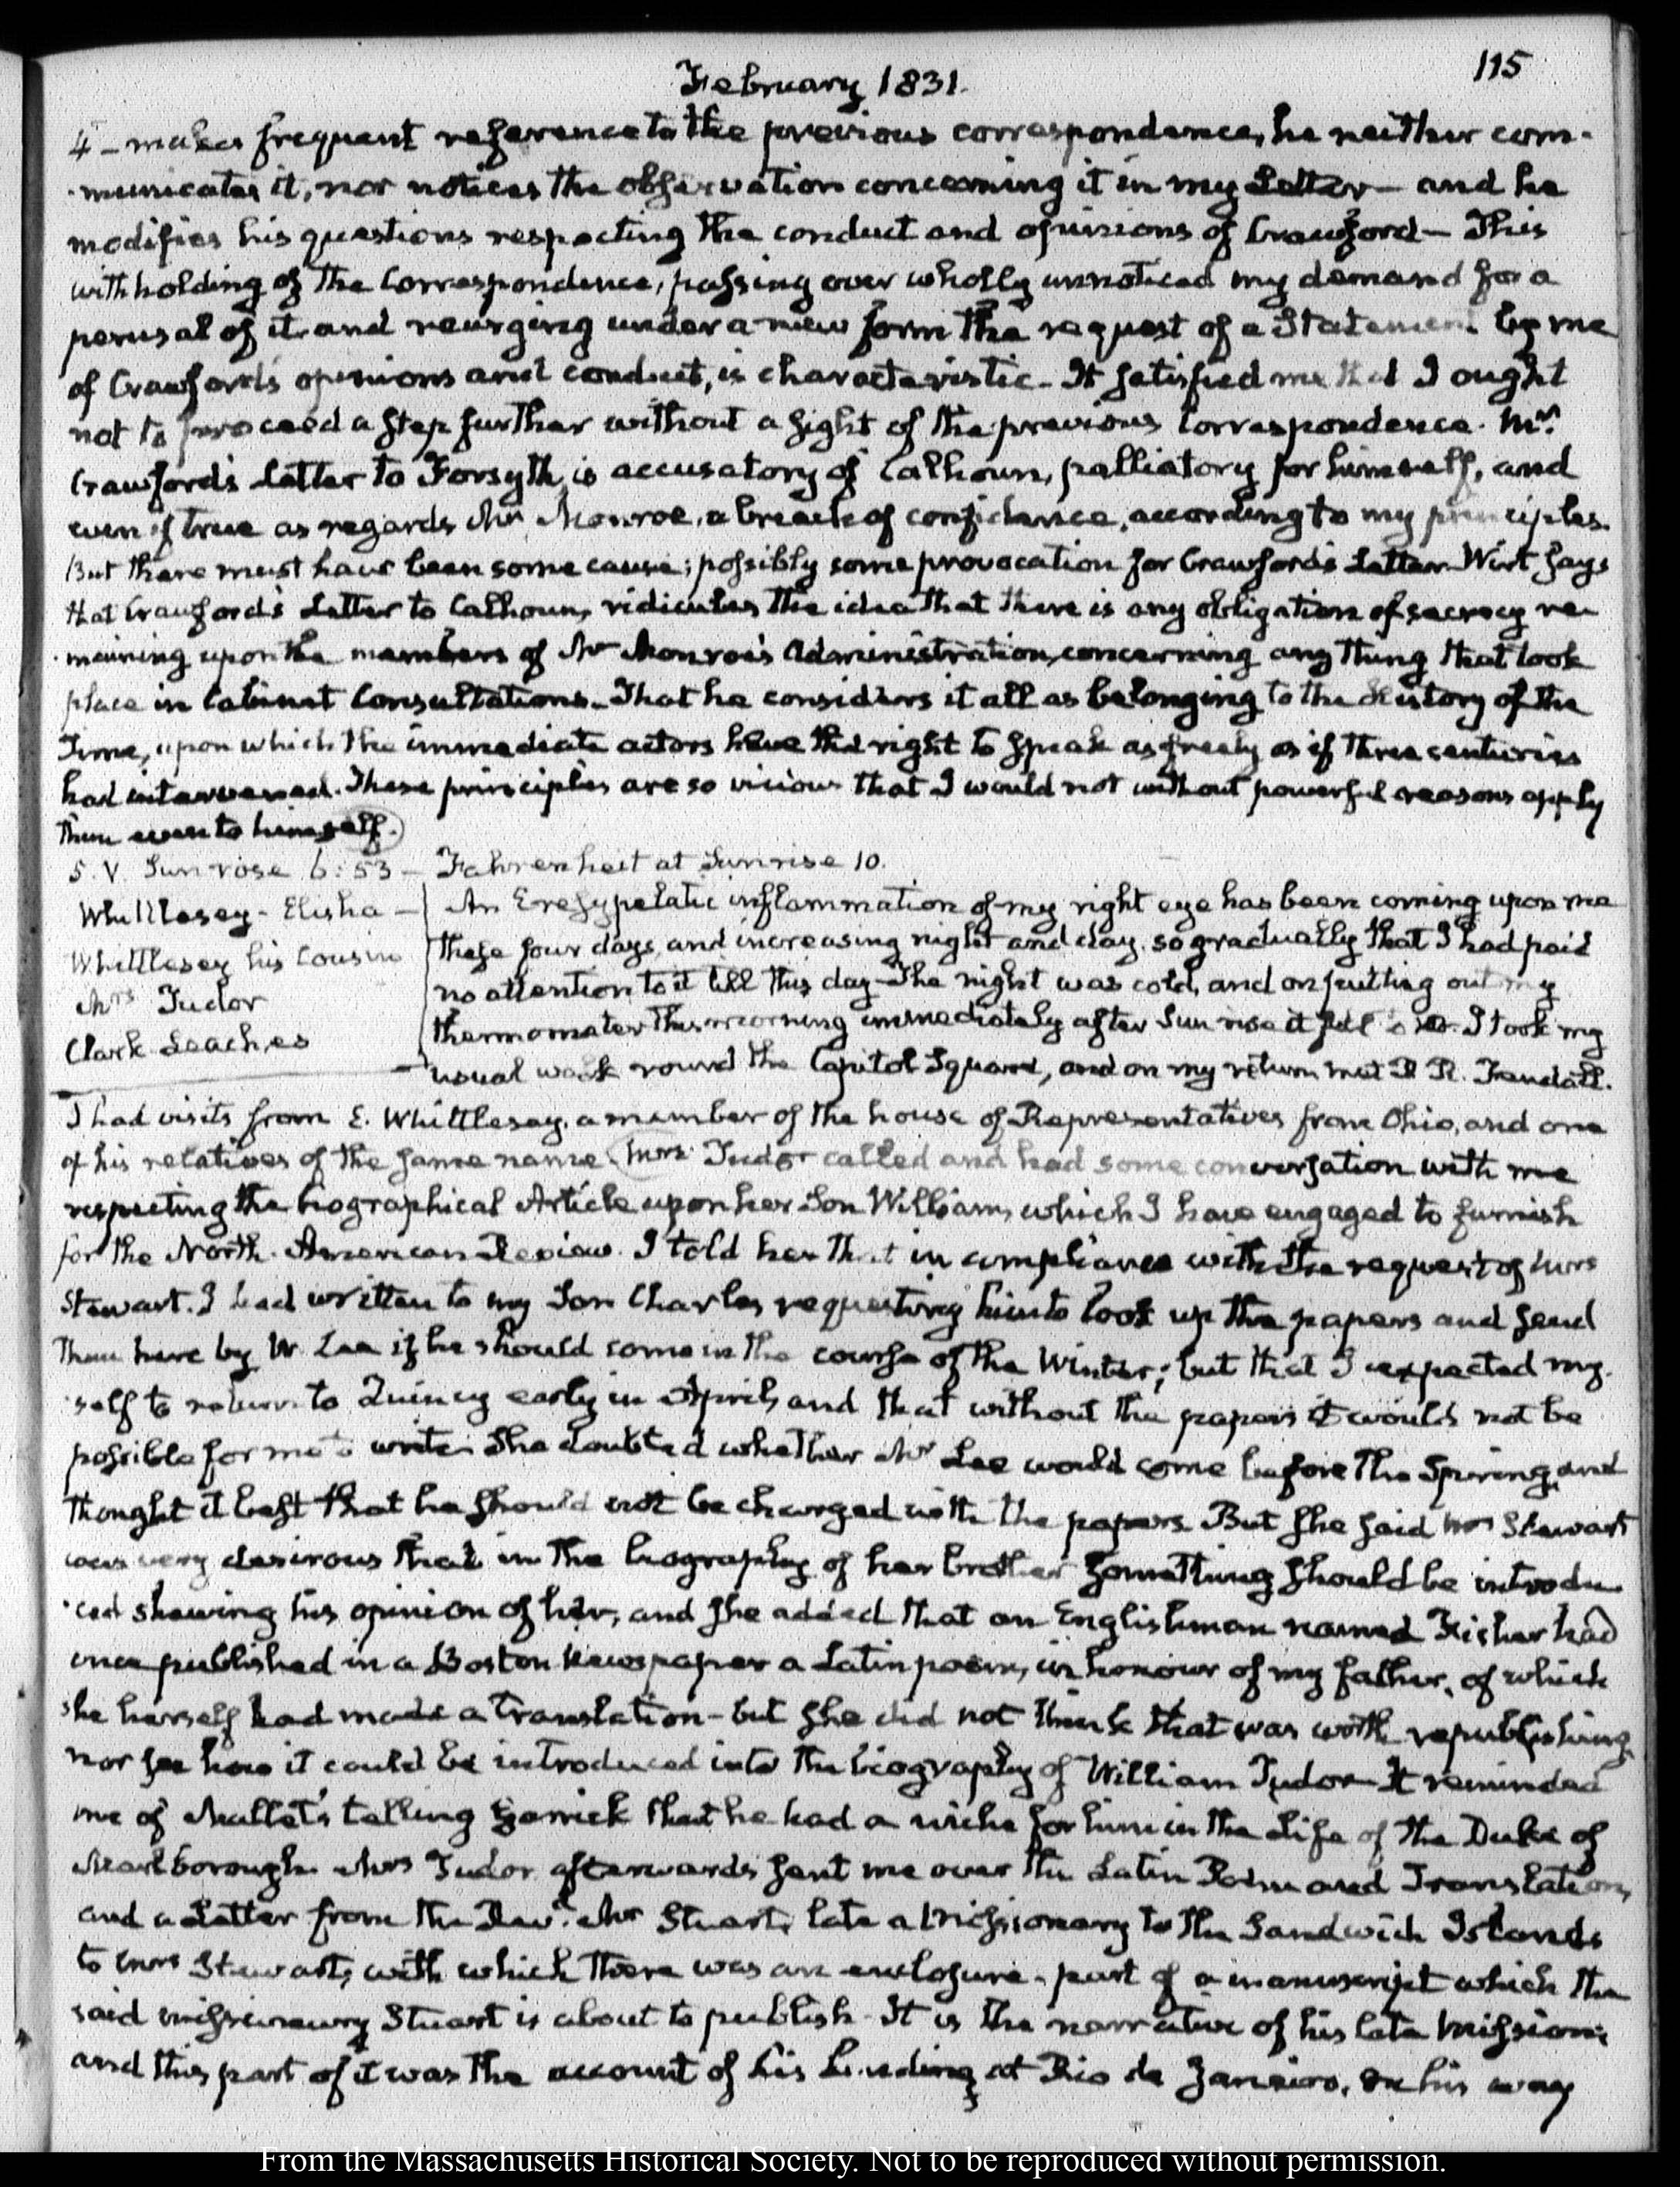 115
February 1831.
4 — makes frequent reference to the previous correspondence, he neither com-
-municates it, nor notices the observation concerning it in my Letter — and he
modifies his questions respecting the conduct and opinions of Crawford — This
withholding of the Correspondence, passing over wholly unnoticed my demand for a
perusal of it and reurging under a new form the request of a Statement by me
of Crawford's opinions and conduct, is characteristic — It satisfied me that I ought
not to proceed a step further without a sight of the previous Correspondence. Mr.
Crawford's Letter to Forsyth, is accusatory of Calhoun, palliatory for himself, and
even if true as regards Mr Monroe, a breach of confidence, according to my principles.
But there must have been some cause; possibly some provocation for Crawford's Letter. Wirt says
that Crawford's Letter to Calhoun, ridicules the idea that there is any obligation of secrecy re-
-maining upon the members of Mr Monroe's Administration, concerning any thing that took
place in Cabinet Consultations. That he considers it all as belonging to the History of the
Time, upon which the immediate actors have the right to speak as freely as if three centuries
had intervened. These principles are so vicious that I would not without powerful reasons apply
them even to himself.
5. V. Sun rose 6:53 — Fahrenheit at Sunrise 10.
Whittlesey — Elisha —
Whittlesey his Cousin
Mrs Tudor
Clark Leaches
An Eresypelatic inflammation of my right eye has been coming upon me
these four days, and increasing night and day, so gradually that I had paid
no attention to it till this day — The night was cold, and on putting out my
thermometer this morning immediately after Sun rise it fell to 10. I took my
usual walk round the Capitol Square, and on my return met
I had visits from E. Whittlesey, a member of the house of Representatives from Ohio, and one
of his relatives of the same name. Mrs Tudor called and had some conversation with me
respecting the biographical Article upon her Son William, which I have engaged to furnish
for the North-American Review. I told her that in compliance with the request of Mrs
Stewart. I had written to my Son Charles requesting him to look up the papers and send
them here by W. Lee if he should come in the course of the Winter; but that I expected my-
-self to return to Quincy early in April, and that without the papers it would not be
possible for me to write. She doubted whether Mr Lee would come before the Spring, and
thought it best that he should not be charged with the papers. But she said Mrs Stewart
was very desirous that in the biography of her brother something should be introdu-
-ced shewing his opinion of her, and she added that an Englishman named Fisher had
once published in a Boston Newspaper a Latin poem, in honour of my father, of which
she herself had made a translation — but she did not think that was worth republishing
nor see how it could be introduced into the biography of William Tudor — It reminded
me of Mallet's telling Garrick that he had a niche for him in the Life of the Duke of
Marlborough. Mrs Tudor afterwards sent me over the Latin Poem and Translation,
and a Letter from the Revd. Mr Stuart, late a Missionary to the Sandwich Islands
to Mrs Stewart, with which there was an enclosure, part of a manuscript which the
said missionary Stuart is about to publish. It is the narrative of his late Mission;
and this part of it was the account of his landing at Rio de Janeiro, on his way
From the Massachusetts Historical Society. Not to be reproduced without permission.